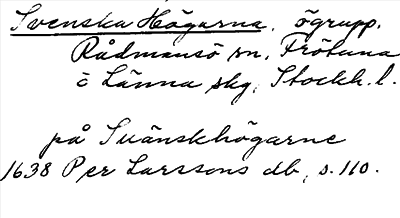 Svenska Högarna, ögrupp.
Rådmansö sn, Frötuna
o Länna skg, Stockh. l.
på Suänskhögarne
1638 Per Larssons db, s. 110.